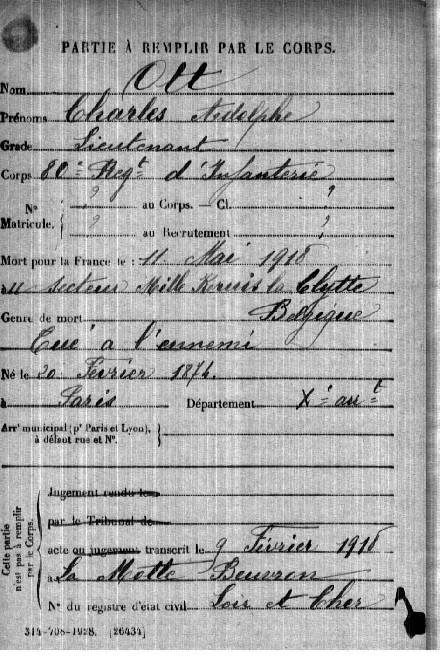 PARTIE À REMPLIR PAR LE CORPS.
Nom Ott
Prénoms Charles Adolphe
Grade Lieutenant
Corps 80e Regt d'Infanterie
N° ? au Corps. — Cl. ?
Matricule. ? au Recrutement ?
Mort pour la France le : 11 Mai 1918
à secteur Mille Kruis la Clytte
Genre de mort Belgique
Tué à l'ennemi
Né le 20 Février 1874
à Paris Département Xe arrt
Arrt municipal (pr Paris et Lyon),
à défaut rue et N°.
Cette partie
n'est pas à remplir
par le Corps.
Jugement rendu le
par le Tribunal de
acte ou jugement transcrit le 9 Février 1918
à La Motte Beuvron
N° du registre d'état civil Loir et Cher
314-708-1928. [26434]